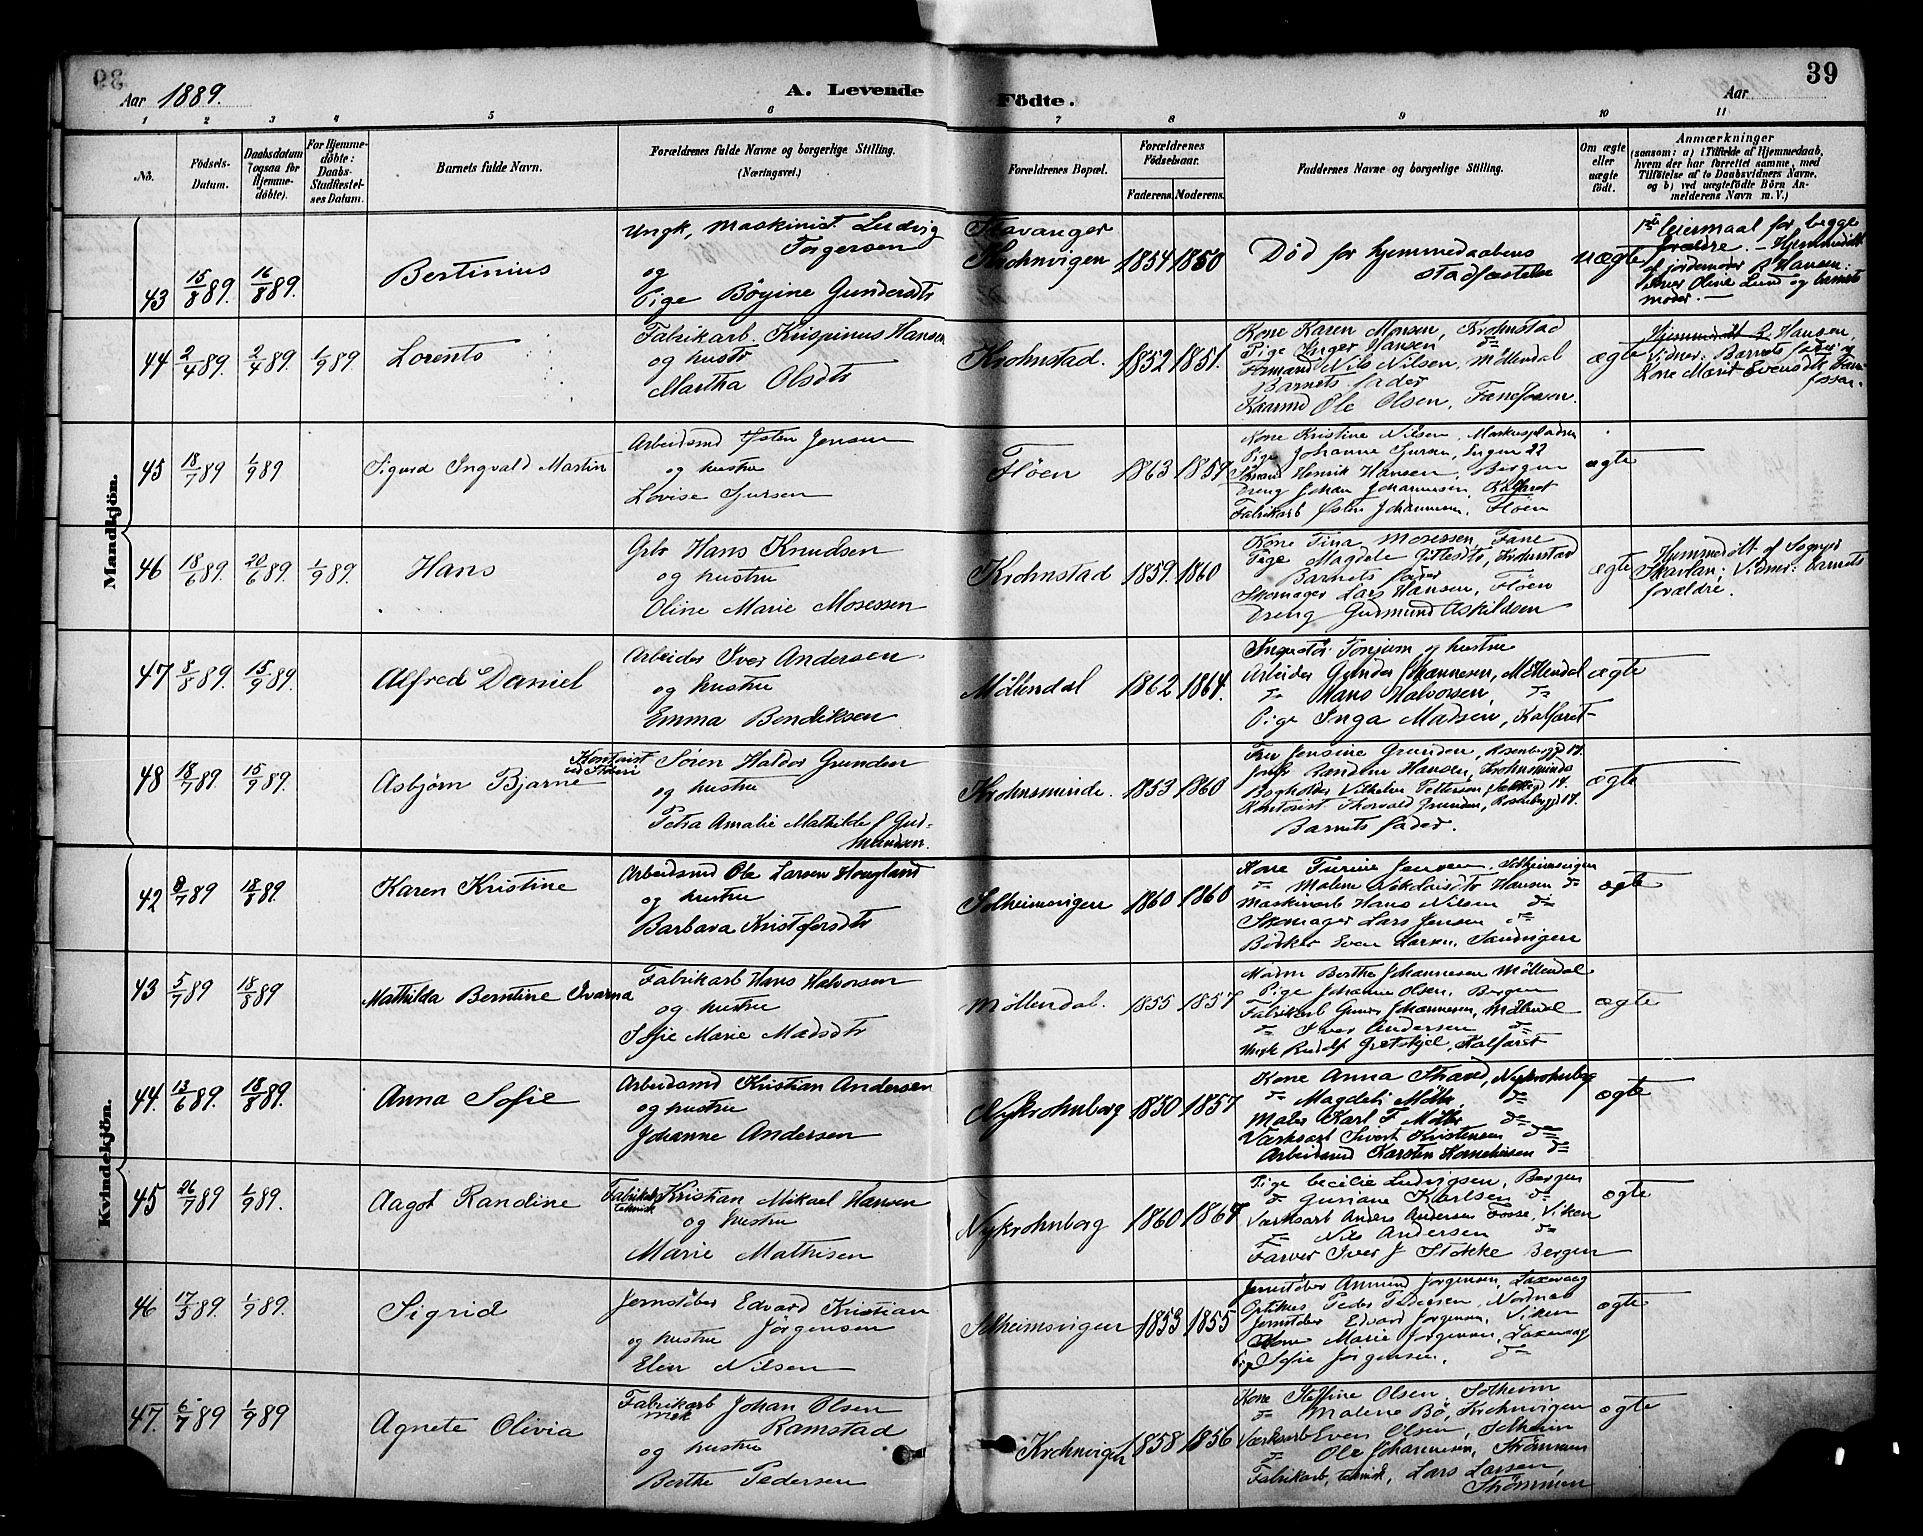 39
Aar 1889.
A. Levende Fødte.
Aar
1 2 3 4 5 6 7 8 9 10 11
No.
Fødsels-Datum.
Daabsdatum (ogsaa for Hjemme-døbte).
For Hjemme-døbte: Daabs-Stadfæstel-ses Datum.
Barnets fulde Navn.
Forældrenes fulde Navne og borgerlige Stilling. (Næringsvei.)
Forældrenes Bopæl.
Forældrenes Fødselsaar.
Faderens. Moderens.
Faddernes Navne og borgerlige Stilling.
Om ægte eller uægte født.
Anmærkninger (saasom: a) i Tilfælde af Hjemmedaab, hvem der har forrettet samme, med Tilføielse af to Daabsvidners Navne, og b) ved uægtefødte Børn An-melderens Navn m.V.)
Mandkjön.
43 15/8 89. 16/8 89. Bertinius
Ungk, Maskinist Ludvig
Torgersen
og
Pige Böyine Gundersdtr
Stavanger
Krohnvigen 1854 1850
Död for hjemmedaabens
stadfæstelse
uægte
1ste leiermaal for begge
forældre. Hjemmedöbt
af jordemoder Hansen:
Vidner Oline Lund og barnets
moder.
44 2/4 89. 2/4 89. 1/9 89. Lorents
Fabrikarb. Krispinus Hansen
og hustr
Martha Olsdtr
Krohnstad. 1852 1851.
Kone Karen Monsen, Krohnstad
Pige Inger Hansen do
Formand Nils Nilsen, Möllendal
Barnets fader
Kaarmd Ole Olsen, Fanefossen.
ægte
Hjemmedöbt Hansen,
Vidner: Barnets fader og
Kone Marit Evensdtr Fane-
fossen.
45 18/7 89 1/9 89. Sigurd Ingvald Martin
Arbeidsmd Östen Jensen
og hustru
Lovise Sjursen
Flöen 1863 1857
Kone Kristine Nilsen, Markuspladsen
Pige Johanne Sjursen, Engen 22
Henrik Hansen, Bergen
Dreng Johan Johannesen, Kalfaret
Fabrikarb Östen Johannesen, Flöen
ægte
46 18/6 89. 20/6 89. 1/9 89. Hans
Grbr Hans Knudsen
og hustru
Oline Marie Mosessen
Krohnstad 1859. 1860
Kone Tina Mosessen, Fane
Pige Magdele Gitlesdtr, Krohnstad
Barnets fader
Skomager Lars Hansen, Flöen
Dreng Gudmund Askildsen
ægte
Hjemmedöbt af Sognepr
Skarlan; Vidner: barnets
forældre.
47 8/8 89. 15/9 89. Alfred Daniel
Arbeider Iver Andersen
og hustru
Emma Bendiksen
Möllendal 1862 1864.
Torjum og hustru
Arbeider Gunder Johannesen, Möllendal
do Hans Halvorsen do
Pige Inga Madsen, Kalfaret
ægte
48 18/7 89. 15/9 89. Asbjørn Bjarne
Kontorist
Sören Haldor Grunden
og hustru
Petra Amalie Mathilde f Gud-
mundsen.
Krohnsminde. 1853 1860
Fru Jensine Grunden, Rosenbergd 17.
Jomfr Randine Hansen, Krohnsminde
Bogholder Vilhelm Pettersen 14.
Kontorist Thorvald Grunden, Rosenbergd 17.
Barnets fader.
ægte
Kvindekjön.
42 9/7 89 18/8 89. Karen Kristine
Arbeidsmd Ole Larsen Hougland
og hustru
Barbara Kristofersdtr
Solheimsvigen 1860 1860
Kone Turine Jensen Solheimsvigen
do Malene Nikolaisdtr Hansen do
Maskinarb Hans Nilsen do
Skomager Lars Jensen do
Bödker Even Larsen, Sandvigen
ægte
43 5/7 89 18/8 89 Mathilda Berntine Ivarna
Fabrikarb Hans Halvorsen
og hustru
Sofie Marie Madsdtr
Möllendal. 1855 1857
Madm Berthe Johannesen Möllendal
Pige Johanne Olsen, Bergen
Fabrikarb Gunder Johannesen, Möllendal
do Iver Andersen do
Ungk Rudolf Kalfaret
ægte
44. 13/6 89. 18/8 89. Anna Sofie
Arbeidsmd Kristian Andersen
og hustru
Johanne Andersen
Nykrohnborg 1850 1857
Kone Anna Strand, Nykrohnborg
do Magdeli Möhr, do
Maler Karl F Möhr do
Værksarb Sivert Kristensen do
Arbeidsmd Karsten Kornelissen do
ægte
45 26/7 89 1/9 89. Aagot Randine
Fabrikarb Kristian Mikael Hansen
og hustru
Marie Mathisen
Nykrohnborg 1860 1867
Pige Cecilie Ludvigsen, Bergen
do Guriane Karlsen do
Værksarb Anders Andersen Fosse, Viken
do Nils Andersen do
Farver Iver J Stokke Bergen
ægte
46 17/5 89. 1/9 89. Sigrid
Jernstöber Edvard Kristian
Jörgensen
og hustru
Elen Nilsen
Solheimsvigen 1853 1855
Jernstöber Amund Jörgensen, Laxevaag
Optikus Peder Pedersen, Nordnes
Jernstöber Edvard Jörgensen, Viken
Kone Marie Jörgensen, Laxevaag
Pige Sofie Jörgensen, do
ægte
47. 6/7 89 1/9 89 Agnete Olivia
Fabrikarb Johan Olsen
mek Ramstad
og hustru
Berthe Pedersen
Krohnvigen 1858 1856
Kone Steffine Olsen, Solheim
do Malene Bö, Krohnvigen
Værksarb Even Olsen, Solheim
do Ole Johannesen, Strömmen
Fabrikarb, teknisk, Lars Larsen,
Strömmen
ægte